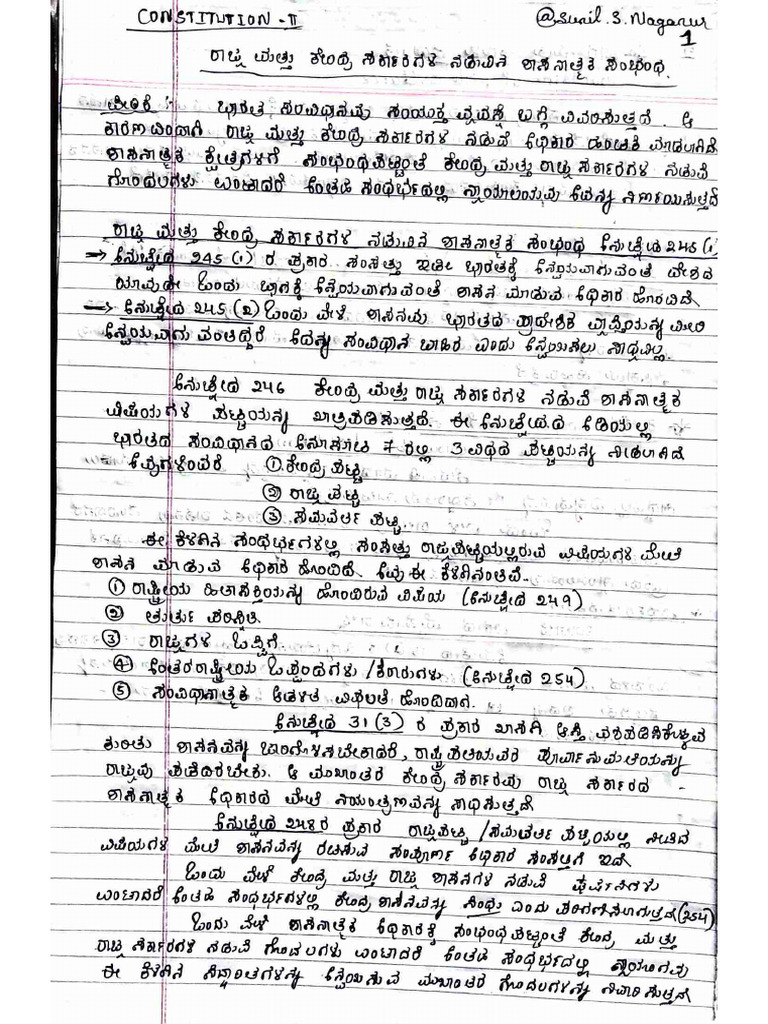 CONSTITUTION - II
@Sunil.S.Naganur
1
ರಾಜ್ಯ ಮತ್ತು ಕೇಂದ್ರ ಸರ್ಕಾರಗಳ ನಡುವಿನ ಶಾಸನಾತ್ಮಕ ಸಂಭಂಧ.
ಪೀಠಿಕೆ : ಭಾರತ ಸಂವಿಧಾನವು ಸಂಯುಕ್ತ ವ್ಯವಸ್ಥೆ ಬಗ್ಗೆ ವಿವರಿಸುತ್ತದೆ. ಆ
ಕಾರಣದಿಂದಾಗಿ ರಾಜ್ಯ ಮತ್ತು ಕೇಂದ್ರ ಸರ್ಕಾರಗಳ ನಡುವೆ ಅಧಿಕಾರ ಹಂಚಿಕೆ ಮಾಡಲಾಗಿದೆ
ಶಾಸನಾತ್ಮಕ ಕ್ಷೇತ್ರಗಳಿಗೆ ಸಂಭಂಧಪಟ್ಟಂತೆ ಕೇಂದ್ರ ಮತ್ತು ರಾಜ್ಯ ಸರ್ಕಾರಗಳ ನಡುವೆ
ಗೊಂದಲಗಳು ಉಂಟಾದರೆ ಅಂತಹ ಸಂಧರ್ಭದಲ್ಲಿ ನ್ಯಾಯಾಲಯವು ಅದನ್ನು ನಿರ್ಣಯಿಸುತ್ತದೆ
ರಾಜ್ಯ ಮತ್ತು ಕೇಂದ್ರ ಸರ್ಕಾರಗಳ ನಡುವಿನ ಶಾಸನಾತ್ಮಕ ಸಂಭಂಧ ಅನುಚ್ಛೇದ 245 (1)
→ ಅನುಚ್ಛೇದ 245 (1) ರ ಪ್ರಕಾರ. ಸಂಸತ್ತು ಇಡೀ ಭಾರತಕ್ಕೆ ಅನ್ವಯವಾಗುವಂತೆ ದೇಶದ
ಯಾವುದೇ ಒಂದು ಭಾಗಕ್ಕೆ ಅನ್ವಯವಾಗುವಂತೆ ಶಾಸನ ಮಾಡುವ ಅಧಿಕಾರ ಹೊಂದಿದೆ.
→ ಅನುಚ್ಛೇದ 245 (2) ಒಂದು ವೇಳೆ ಶಾಸನವು ಭಾರತದ ಪ್ರಾದೇಶಿಕ ವ್ಯಾಪ್ತಿಯನ್ನು ಮೀರಿ
ಅನ್ವಯವಾಗುವಂತಿದ್ದರೆ ಅದನ್ನು ಸಂವಿಧಾನ ಬಾಹಿರ ಎಂದು ಅನ್ವಯಿಸಲು ಸಾಧ್ಯವಿಲ್ಲ.
ಅನುಚ್ಛೇದ 246 ಕೇಂದ್ರ ಮತ್ತು ರಾಜ್ಯ ಸರ್ಕಾರಗಳ ನಡುವೆ ಶಾಸನಾತ್ಮಕ
ವಿಷಯಗಳ ಪಟ್ಟಿಯನ್ನು ಖಾತ್ರಿಪಡಿಸುತ್ತದೆ. ಈ ಅನುಚ್ಛೇದದ ಅಡಿಯಲ್ಲಿ
ಭಾರತದ ಸಂವಿಧಾನದ ಅನುಸೂಚಿ 7 ರಲ್ಲಿ 3 ವಿಧದ ಪಟ್ಟಿಯನ್ನು ನೀಡಲಾಗಿದೆ
ಅವುಗಳೆಂದರೆ ① ಕೇಂದ್ರ ಪಟ್ಟಿ
② ರಾಜ್ಯ ಪಟ್ಟಿ
③ ಸಮವರ್ತಿ ಪಟ್ಟಿ.
ಈ ಕೆಳಗಿನ ಸಂಧರ್ಭಗಳಲ್ಲಿ ಸಂಸತ್ತು ರಾಜ್ಯಪಟ್ಟಿಯಲ್ಲಿರುವ ವಿಷಯಗಳ ಮೇಲೆ
ಶಾಸನ ಮಾಡುವ ಅಧಿಕಾರ ಹೊಂದಿದೆ. ಅವು ಈ ಕೆಳಗಿನಂತಿವೆ-
① ರಾಷ್ಟ್ರೀಯ ಹಿತಾಸಕ್ತಿಯನ್ನು ಹೊಂದಿರುವ ವಿಷಯ (ಅನುಚ್ಛೇದ 249)
② ತುರ್ತು ಪರಿಸ್ಥಿತಿ.
③ ರಾಜ್ಯಗಳ ಒಪ್ಪಿಗೆ
④ ಅಂತರರಾಷ್ಟ್ರೀಯ ಒಪ್ಪಂದಗಳು / ಕರಾರುಗಳು (ಅನುಚ್ಛೇದ 254)
⑤ ಸಂವಿಧಾನಾತ್ಮಕ ಆಡಳಿತ ವಿಫಲತೆ ಹೊಂದಿದಾಗ.
ಅನುಚ್ಛೇದ 31 (3) ರ ಪ್ರಕಾರ ಖಾಸಗಿ ಆಸ್ತಿ ವಶಪಡಿಸಿಕೊಳ್ಳುವ
ಕುರಿತು ಶಾಸನವನ್ನು ಜಾರಿಗೊಳಿಸಬೇಕಾದರೆ, ರಾಷ್ಟ್ರಪತಿಯವರ ಪೂರ್ವಾನುಮತಿಯನ್ನು
ರಾಜ್ಯವು ಪಡೆದಿರಬೇಕು. ಆ ಮುಖಾಂತರ ಕೇಂದ್ರ ಸರ್ಕಾರವು ರಾಜ್ಯ ಸರ್ಕಾರದ
ಶಾಸನಾತ್ಮಕ ಅಧಿಕಾರದ ಮೇಲೆ ನಿಯಂತ್ರಣವನ್ನು ಸಾಧಿಸುತ್ತದೆ
ಅನುಚ್ಛೇದ 248ರ ಪ್ರಕಾರ ರಾಜ್ಯಪಟ್ಟಿ / ಸಮವರ್ತಿ ಪಟ್ಟಿಯಲ್ಲಿ ನೀಡದ
ವಿಷಯಗಳ ಮೇಲೆ ಶಾಸನವನ್ನು ರಚಿಸುವ ಸಂಪೂರ್ಣ ಅಧಿಕಾರ ಸಂಸತ್ತಿಗೆ ಇದೆ
ಒಂದು ವೇಳೆ ಕೇಂದ್ರ ಮತ್ತು ರಾಜ್ಯ ಶಾಸನಗಳ ನಡುವೆ
ಉಂಟಾದರೆ ಅಂತಹ ಸಂಧರ್ಭಗಳಲ್ಲಿ ಕೇಂದ್ರ ಶಾಸನವನ್ನು ಸಿಂಧು ಎಂದು ಪರಿಗಣಿಸಲಾಗುತ್ತದೆ (254)
ಒಂದು ವೇಳೆ ಶಾಸನಾತ್ಮಕ ಅಧಿಕಾರಕ್ಕೆ ಸಂಭಂಧಪಟ್ಟಂತೆ ಕೇಂದ್ರ ಮತ್ತು
ರಾಜ್ಯ ಸರ್ಕಾರಗಳ ನಡುವೆ ಗೊಂದಲಗಳು ಉಂಟಾದರೆ ಅಂತಹ ಸಂಧರ್ಭದಲ್ಲಿ ನ್ಯಾಯಾಂಗವು
ಈ ಕೆಳಗಿನ ಸಿದ್ಧಾಂತಗಳನ್ನು ಅನ್ವಯಿಸುವ ಮುಖಾಂತರ ಗೊಂದಲಗಳನ್ನು ನಿವಾರಿಸುತ್ತದೆ